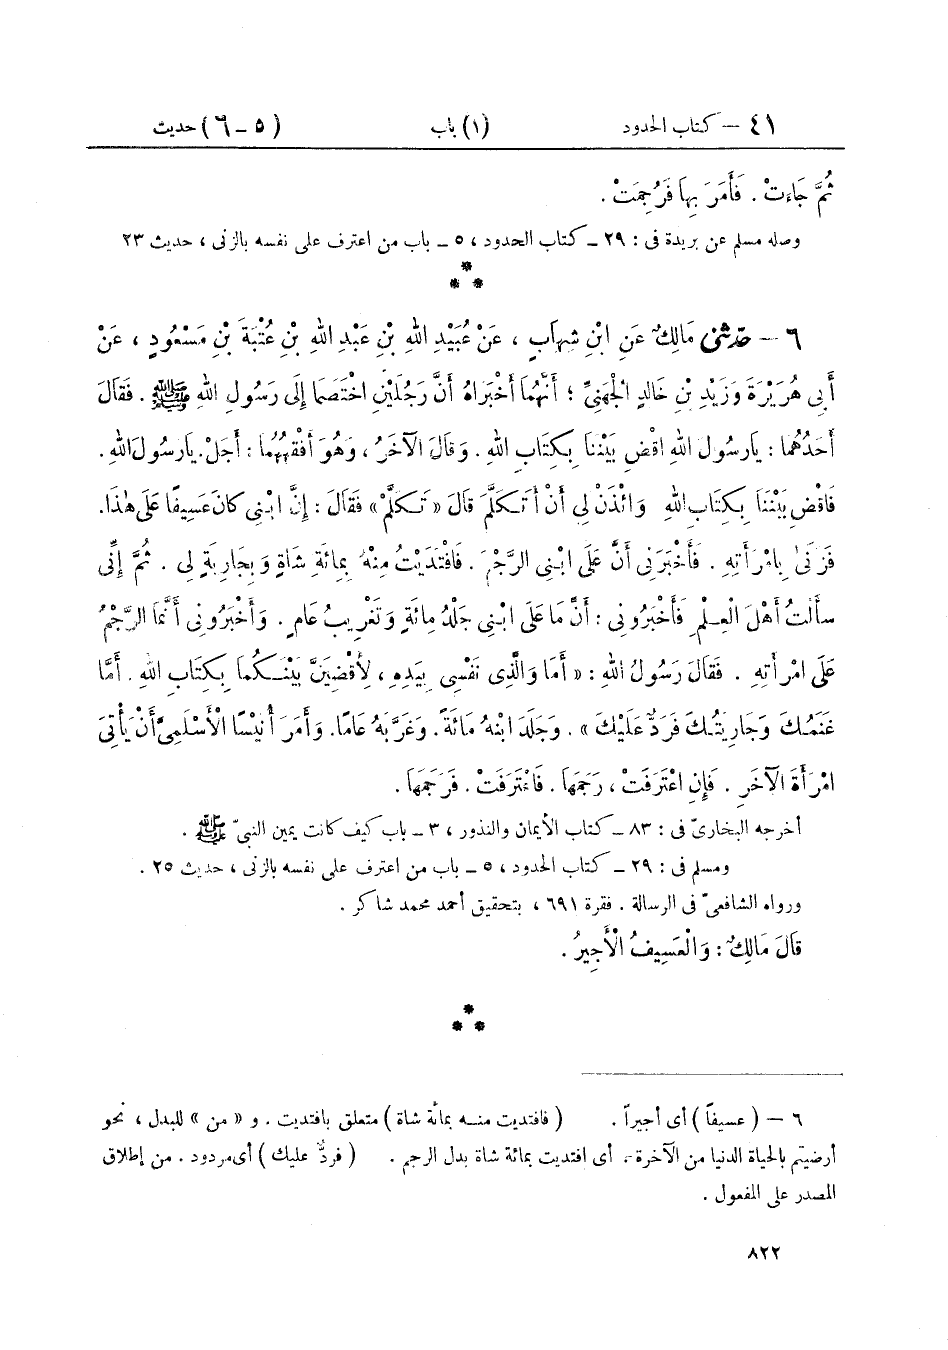 ٤١ – كتاب الحدود (١) باب (٥ – ٦) حديث
ثُمَّ جَاءَتْ . فَأَمَرَ بِهَا فَرُجِمَتْ .
وصله مسلم عن بريدة فى : ٢٩ – كتاب الحدود ، ٥ – باب من اعترف على نفسه بالزنى ، حديث ٢٣
***
٦ – حدّثنى مَالِكٌ عَنِ ابْنِ شِهاَبٍ ، عَنْ عُبَيْدِ اللهِ بْنِ عَبْدِ اللهِ بْنِ عُتْبَةَ بْنِ مَسْعُودٍ ، عَنْ
أَبِى هُرَيْرَةَ وَزَيْدِ بْنِ خَالِدٍ الْجُهَنِىِّ ؛ أَنَّهُمَا أَخْبَرَاهُ أَنَّ رَجُلَيْنِ اخْتَصَمَا إِلَى رَسُولِ اللهِ ﷺ . فَقَالَ
أَحَدُهُمَا : يَارَسُولَ اللهِ اقْضِ بَيْنَنَا بِكِتَابِ اللهِ . وَقَالَ الْآخَرُ ، وَهُوَ أَفْقَهُهُمَا : أَجَلْ. يَارَسُولَ اللهِ .
فَاقْضِ بَيْنَنَا بِكِتَابِ اللهِ وَائْذَنْ لِى أَنْ أَتَكَلَّمَ قَالَ « تَكَلَّمْ » فَقَالَ : إِنَّ ابْنِى كَانَ عَسِيفًا عَلَى هٰذَا.
فَزَنَىٰ بِامْرَأَتِهِ . فَأَخْبَرَنِى أَنَّ عَلَى ابْنِى الرَّجْمَ . فَافْتَدَيْتُ مِنْهُ بِمِائَةِ شَاةٍ وَبِجَارِيَةٍ لِى . ثُمَّ إِنِّى
سَأَلْتُ أَهْلَ الْعِلْمِ فَأَخْبَرُونِى : أَنَّ مَا عَلَى ابْنِى جَلْدُ مِائَةٍ وَتَغْرِيبُ عَامٍ . وَأَخْبَرُونِى أَنَّمَا الرَّجْمُ
عَلَى امْرَأَتِهِ . فَقَالَ رَسُولُ اللهِ : « أَمَا وَالَّذِى نَفْسِى بِيَدِهِ ، لَأَقْضِيَنَّ بَيْنَكُمَا بِكِتَابِ اللهِ . أَمَّا
غَنَمُكَ وَجَارِيَتُكَ فَرَدٌّ عَلَيْكَ » . وَجَلَدَ ابْنَهُ مِائَةً. وَغَرَّبَهُ عَامًا. وَأَمَرَ أُنَيْسًا الْأَسْلَمِىَّ أَنْ يَأْتِىَ
امْرَأَةَ الْآخَرِ . فَإِنِ اعْتَرَفَتْ ، رَجَمَهَا . فَاعْتَرَفَتْ . فَرَجَمَهَا .
أخرجه البخارىّ فى : ٨٣ – كتاب الأيمان والنذور ، ٣ – باب كيف كانت يمين النبىّ ﷺ .
ومسلم فى : ٢٩ – كتاب الحدود ، ٥ – باب من اعترف على نفسه بالزنى ، حديث ٢٥ .
ورواه الشافعىّ فى الرسالة . فقرة ٦٩١ ، بتحقيق أحمد محمد شاكر .
قَالَ مَالِكٌ : وَالْعَسِيفُ الْأَجِيرُ .
***
٦ – ( عسيفاً ) أى أجيراً . ( فافتديت منه بمائة شاة ) متعلق بافتديت . و « من » للبدل ، نحو
أرضيتم بالحياة الدنيا من الآخرة – أى افتديت بمائة شاة بدل الرجم . ( فردٌّ عليك ) أى مردود . من إطلاق
المصدر على المفعول .
٨٢٢